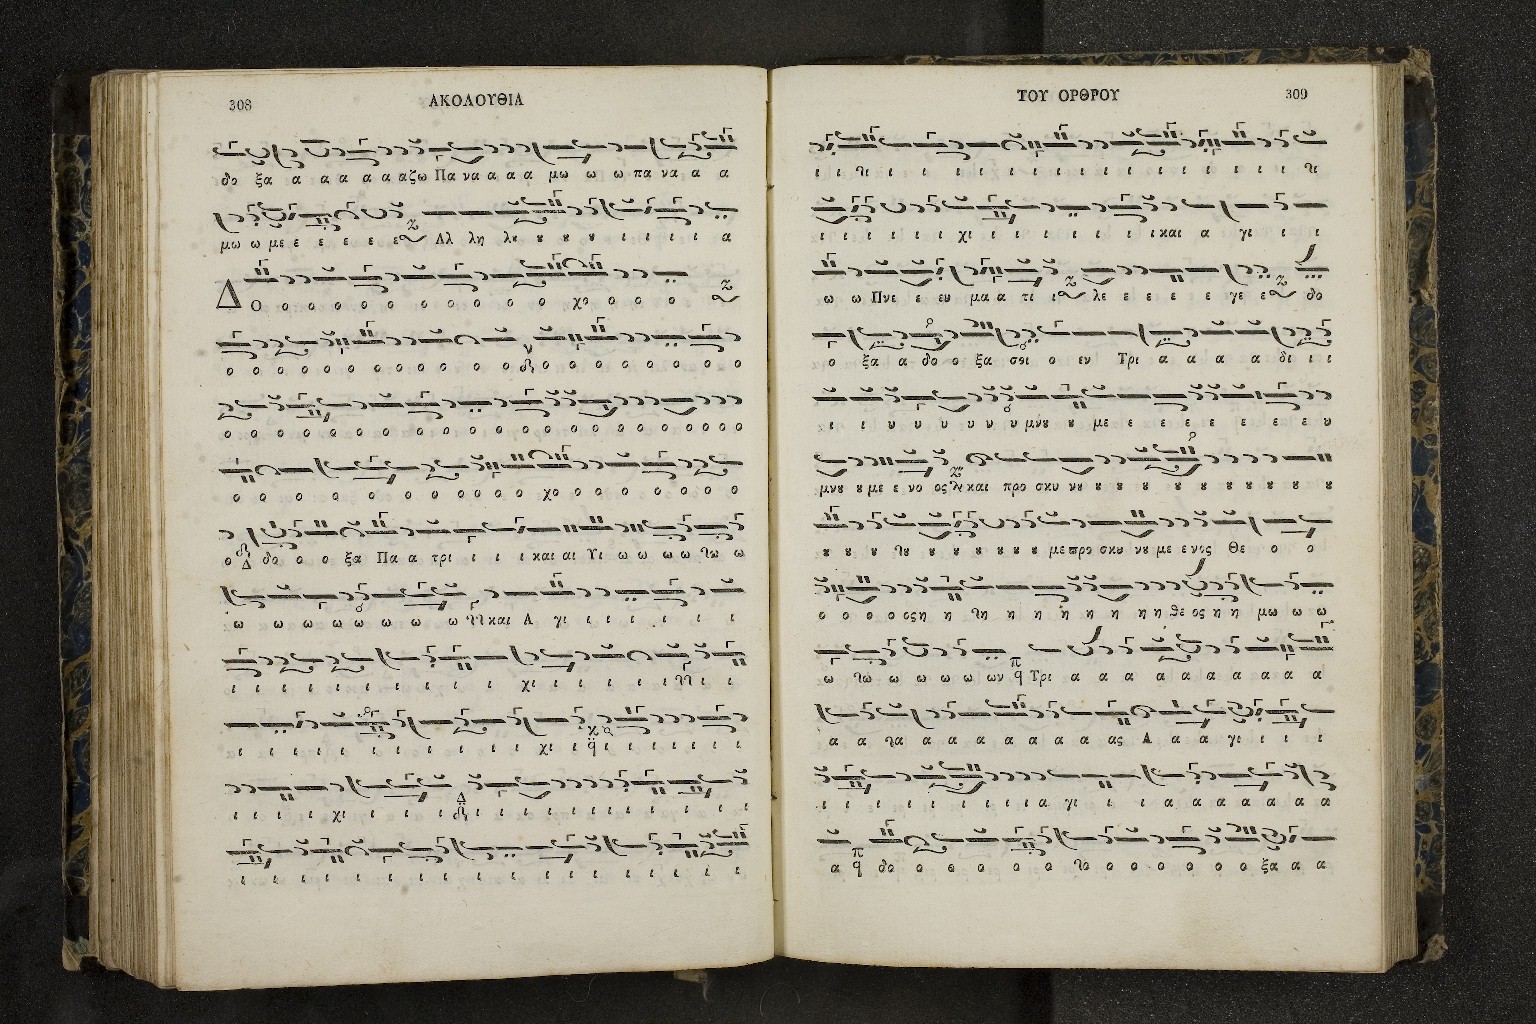 308
ΑΚΟΛΟΥΘΙΑ
δο ξα α α α α α αζω Πα να α α α μω ω ω πα να α α
μω ω με ε ε ε ε ε ε Αλ λη λȣ ȣ ȣ ȣ ι ι ι ι α
Δ Ο ο ο ο ο ο ο ο ο ο ο ο χο ο ο ο
ο ο ο ο ο ο ο ο ο ο ο ο ο ο ο ο ο ο ο
ο ο ο ο ο ο ο ο ο ο ο ο ο ο ο ο ο ο ο ο ο ο
ο ο ο ο ο ο ο ο ο ο ο ο χο ο ο ο ο ο ο ο
ο Δ δο ο ο ξα Πα α τρι ι ι ι και αι Υι ω ω ω ω ω ω
ω ω ω ω ω ω ω ω ω και Α γι ι ι ι ι ι ι
ι ι ι ι ι ι ι ι ι ι ι χι ι ι ι ι ι ι
ι ι ι ι ι ι ι ι ι ι ι χι ι ι ι ι ι ι ι
ι ι ι ι χι ι ι ι ι ι ι ι ι ι ι ι ι ι ι
ι ι ι ι ι ι ι ι ι ι ι ι ι ι ι ι ι ι
ΤΟΥ ΟΡΘΡΟΥ
309
ι ι ι ι ι ι ι ι ι ι ι ι ι ι ι ι ι ι
ι ι ι ι ι ι χι ι ι ι ι ι ι ι και α γι ι ι
ω ω Πνε ε ευ μα α τι ι λε ε ε ε ε γε ε δο
ο ξα α δο ο ξα σοι ο εν Τρι α α α α δι ι ι
ι ι υ υ υ υ υ υ μνȣ ȣ με ε ε ε ε ε ε ε υ
μνȣ ȣ με ε νο ος και προ σκυ νȣ ȣ ȣ ȣ ȣ ȣ ȣ ȣ ȣ ȣ
ȣ ȣ ȣ ȣ ȣ ȣ ȣ ȣ ȣ ȣ ȣ με προ σκυ νȣ με ε νος Θε ο ο
ο ο ο ο ος η η η η η η η η η η η θε ος η η μω ω ω
ω ω ω ω ω ω ων π Τρι α α α α α α α α α α
α α α α α α α α α α ας Α α α γι ι ι ι
ι ι ι ι ι ι ι ι ι ι α γι ι ι α α α α α α α
α π δο ο ο ο ο ο ο ο ο ο ο ο ο ο ξα α α